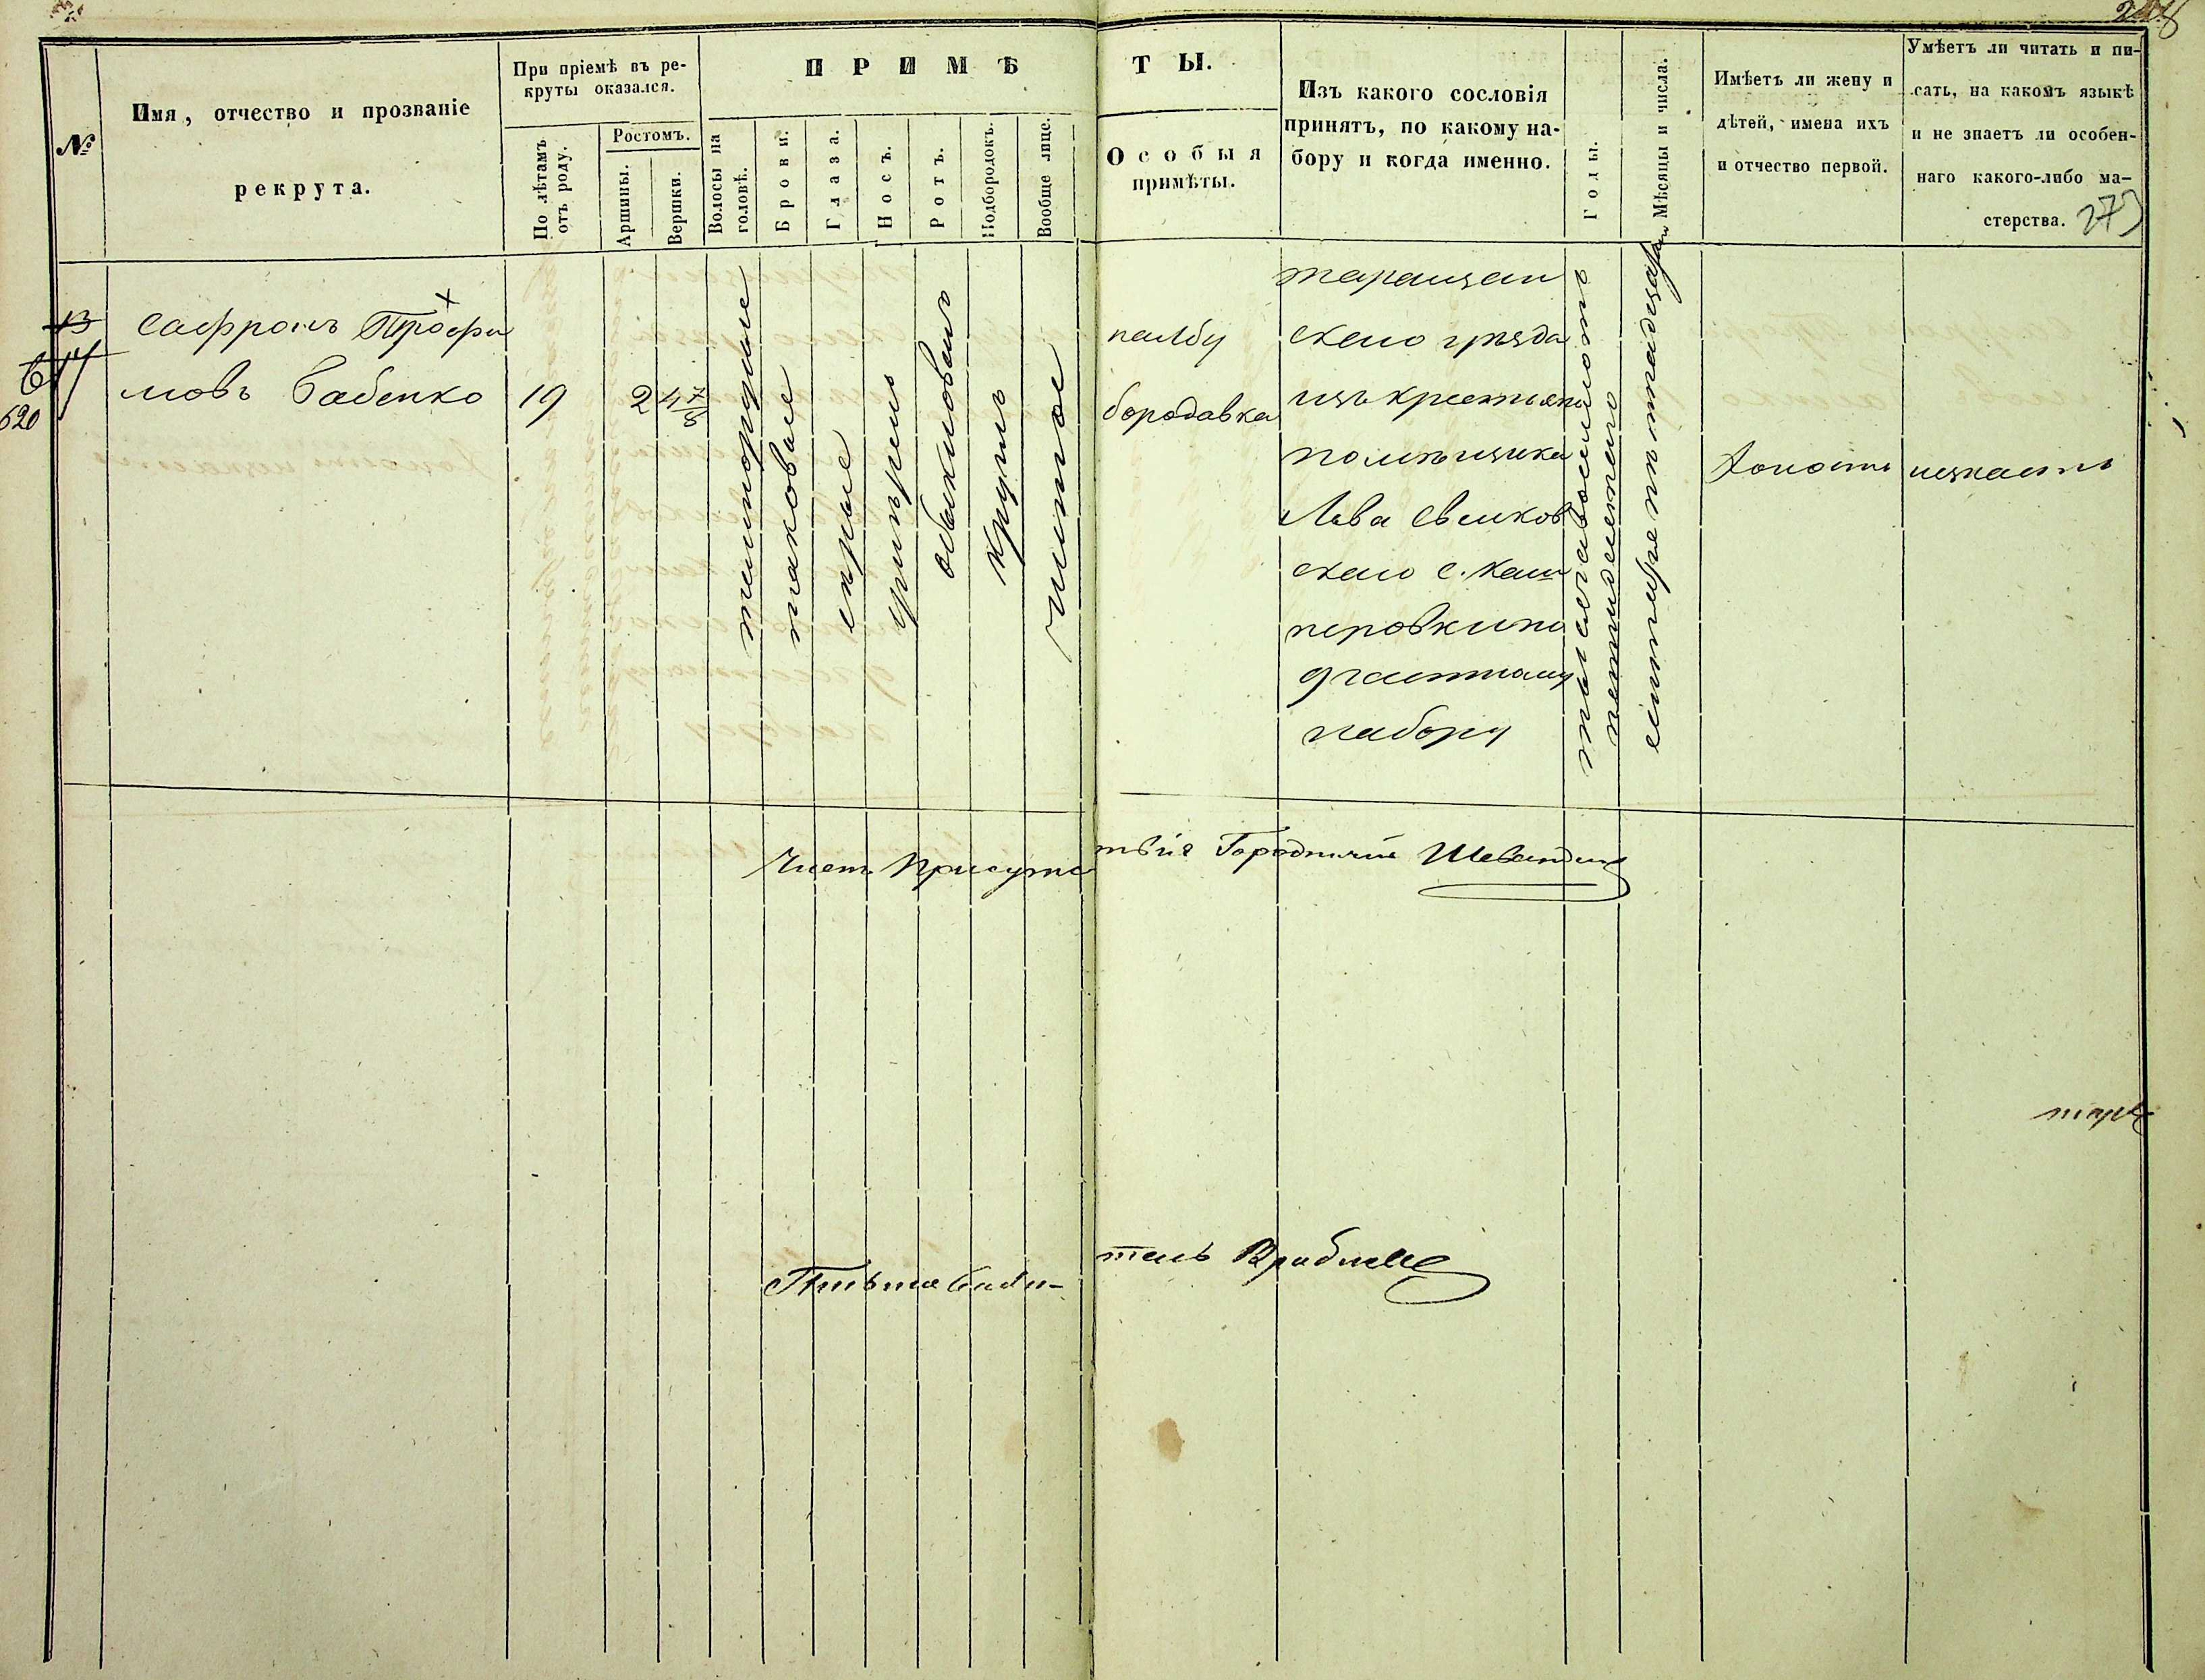 248
№
Имя, отчество и прозваніе
рекрута.
При пріемѣ въ ре-
круты оказался.
По лѣтамъ
отъ роду.
Ростомъ.
Аршины.
Вершки.
ПРИМѢ
ТЫ.
Волосы на
головѣ.
Брови.
Глаза.
Носъ.
Ротъ.
Подбородокъ.
Вообще лице.
Особыя
примѣты.
Изъ какого сословія
принятъ, по какому на-
бору и когда именно.
Годы.
Мѣсяцы и числа.
Имѣетъ ли жену и
дѣтей, имена ихъ
и отчество первой.
Умѣетъ ли читать и пи-
сать, на какомъ языкѣ
и не знаетъ ли особен-
наго какого-либо ма-
стерства.
273
13
14
620
Сафронъ Трофи
мовъ Бабенко
19
2
4 7/8
темнорусые
таковые
серые
умѣренъ
обыкновенъ
круглъ
чистое
на лбу
бородавка
таращан
скаго уѣзда
изъ крестьянъ
помѣщика
Льва
скаго с. Каш
перовки по
частному
набору
тысяча восемьсотъ
пятидесятаго
сентября пятнадцатаго
Холостъ
незнаетъ
Член Присутс
твія Городничій